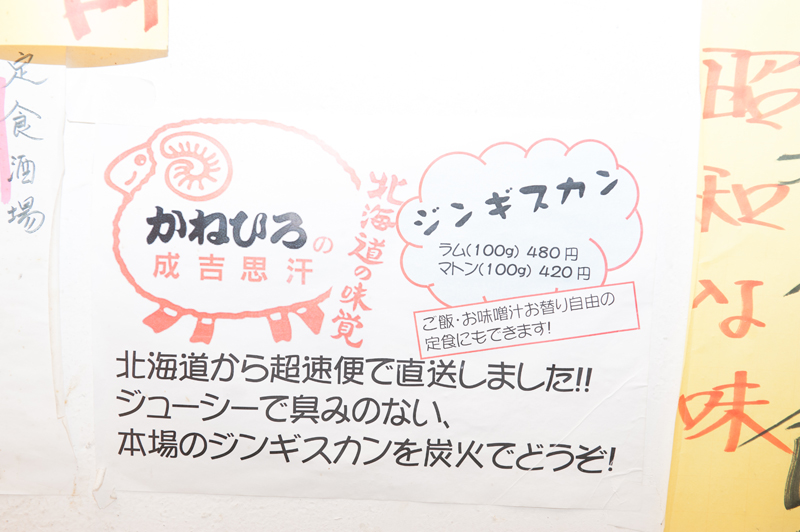 定食酒場
かねひろの
成吉思汗
北海道の味覚
ジンギスカン
ラム(100g) 480円
マトン(100g) 420円
ご飯・お味噌汁お替り自由の
定食にもできます!
北海道から超速便で直送しました!!
ジューシーで臭みのない、
本場のジンギスカンを炭火でどうぞ!
昭和な味